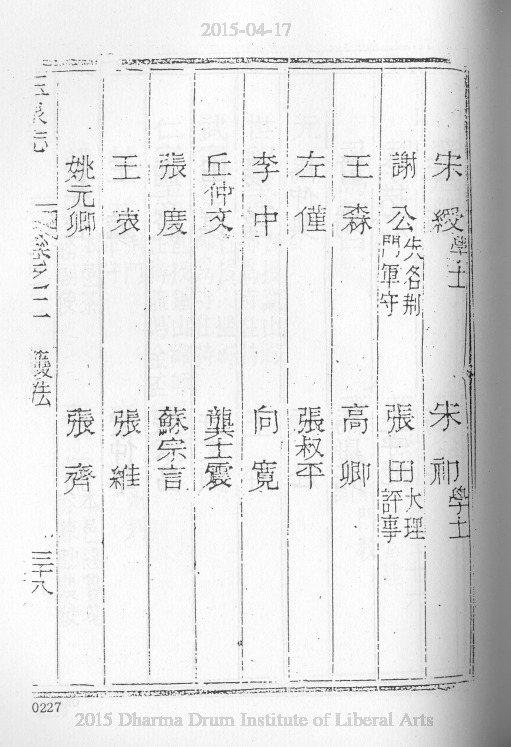 2015-04-17
宋綬學士 宋祁學士
謝公先名荆門軍守 張田大理評事
王森 高卿
左僅 張叔平
李中 向寛
丘仲文 龔士震
張度 蘇宗言
王衮 張維
姚元卿 張齊
玉泉志 卷之二 護法 三十八
0227
2015 Dharma Drum Institute of Liberal Arts